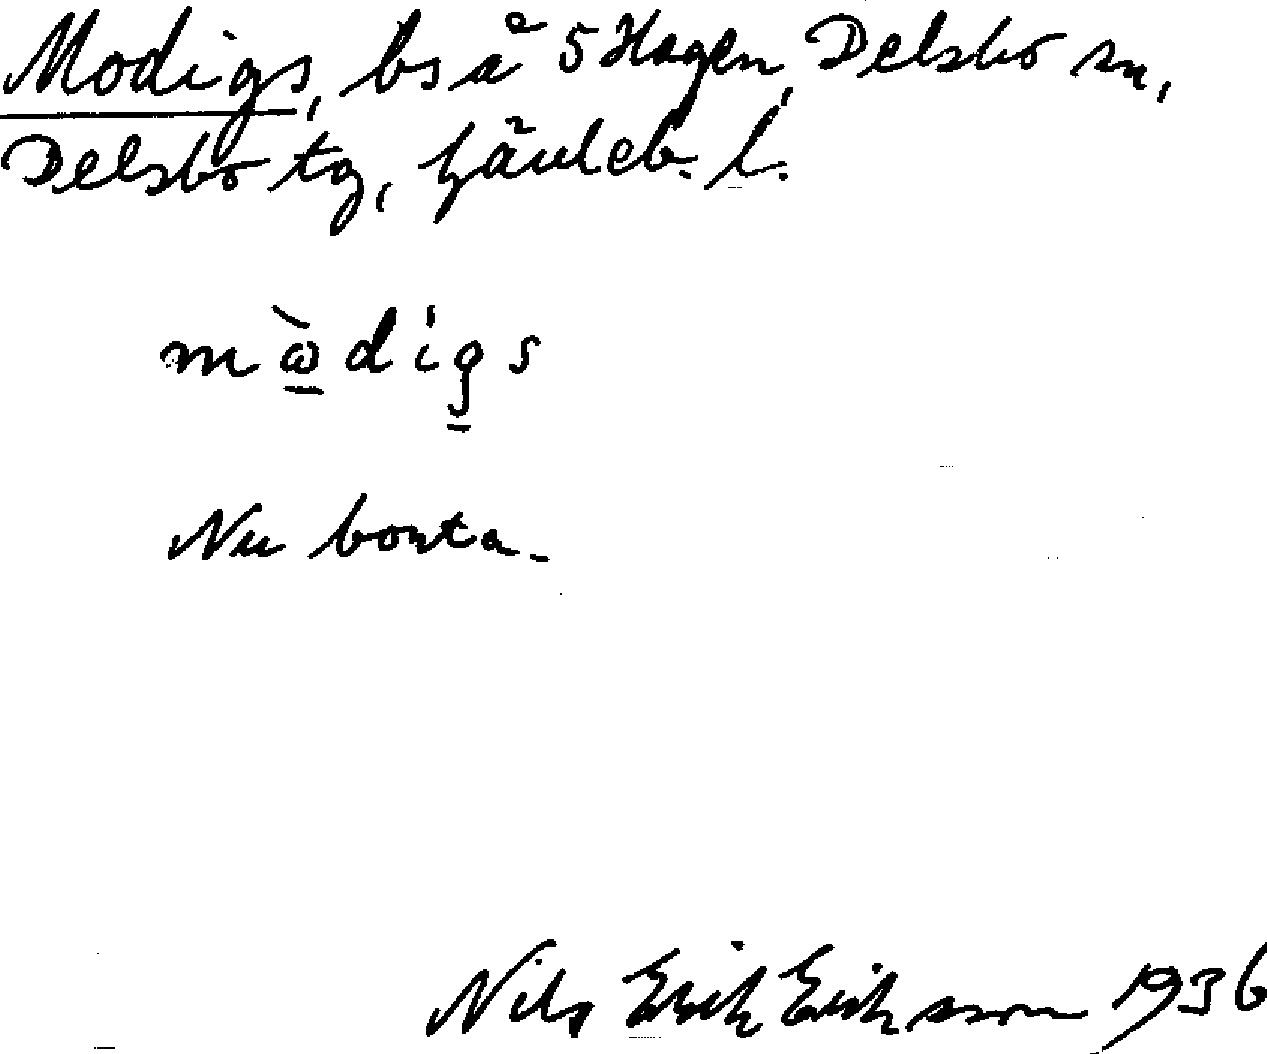 Modigs, bs å 5 Hagen, Delsbo sn,
Delsbo tg, Gävleb. l.
mὼdigs
Nu borta.
Nils Erik Eriksson 1936